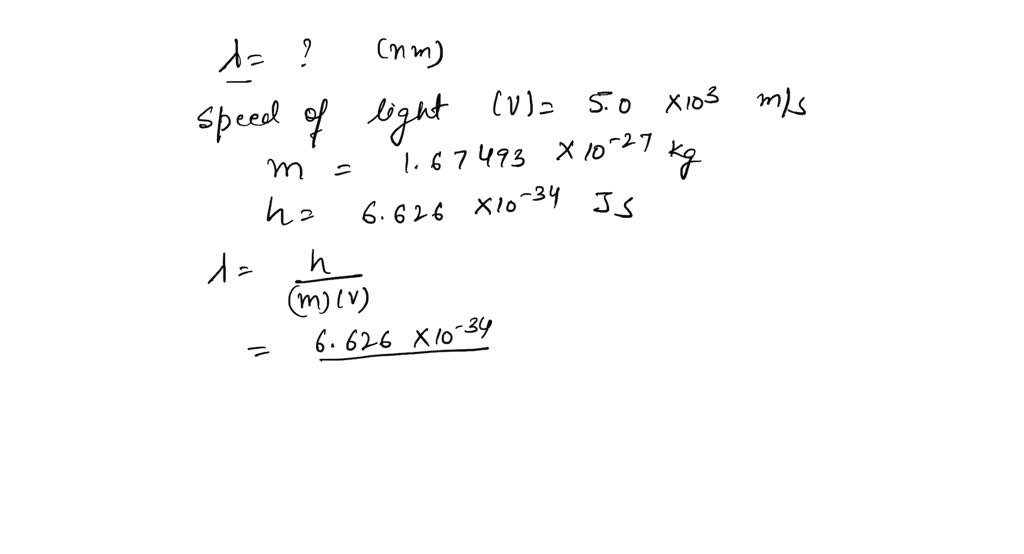 λ = ? (nm)
Speed of light (V) = 5.0 × 10³ m/s
m = 1.67493 × 10⁻²⁷ kg
h = 6.626 × 10⁻³⁴ Js
λ = h
(m)(V)
= 6.626 × 10⁻³⁴